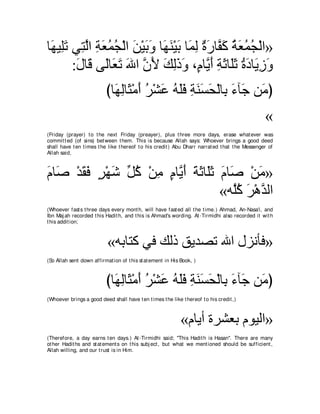 »الْجُمُعَةُ كَفَّارَةٌ لِمَا بَيْنَهَا وَبَيْنَ الْجُمُعَةِ الَّتِي تَلِيَهَا
وَزِيَادَةُ ثَلَاثَةِ أَيَّامٍ، وَذلِكَ لِأَنَّ اللهَ تَعَالَى قَالَ:
(مَن جَآءَ بِالْحَسَنَةِ فَلَهُ عَشْرُ أَمْثَالِهَا)
«
(Friday (prayer) to the next Friday (preayer), plus three more days, erase whatever was
committed (of sins) between them. This is because Allah says: Whoever brings a good deed
shall have ten times the like thereof to his credit) Abu Dharr narrated that the Messenger of
Allah said,
»مَنْ صَامَ ثَلَاثَةَ أَيَّامٍ مِنْ كُلِّ شَهْرٍ فَقَدْ صَامَ
الدَّهْرَ كُلَّه«
(Whoever fasts three days every month, will have fasted all the time.) Ahmad, An-Nasa'i, and
Ibn Majah recorded this Hadith, and this is Ahmad's wording. At-Tirmidhi also recorded it with
this addition;
»فأنزل الله تصديق ذلك في كتابه«
(So Allah sent down affirmation of this statement in His Book, )
(مَن جَآءَ بِالْحَسَنَةِ فَلَهُ عَشْرُ أَمْثَالِهَا)
(Whoever brings a good deed shall have ten times the like thereof to his credit,)
»اليوم بعشرة أيام«
(Therefore, a day earns ten days.) At-Tirmidhi said; "This Hadith is Hasan". There are many
other Hadiths and statements on this subject, but what we mentioned should be sufficient,
Allah willing, and our trust is in Him.